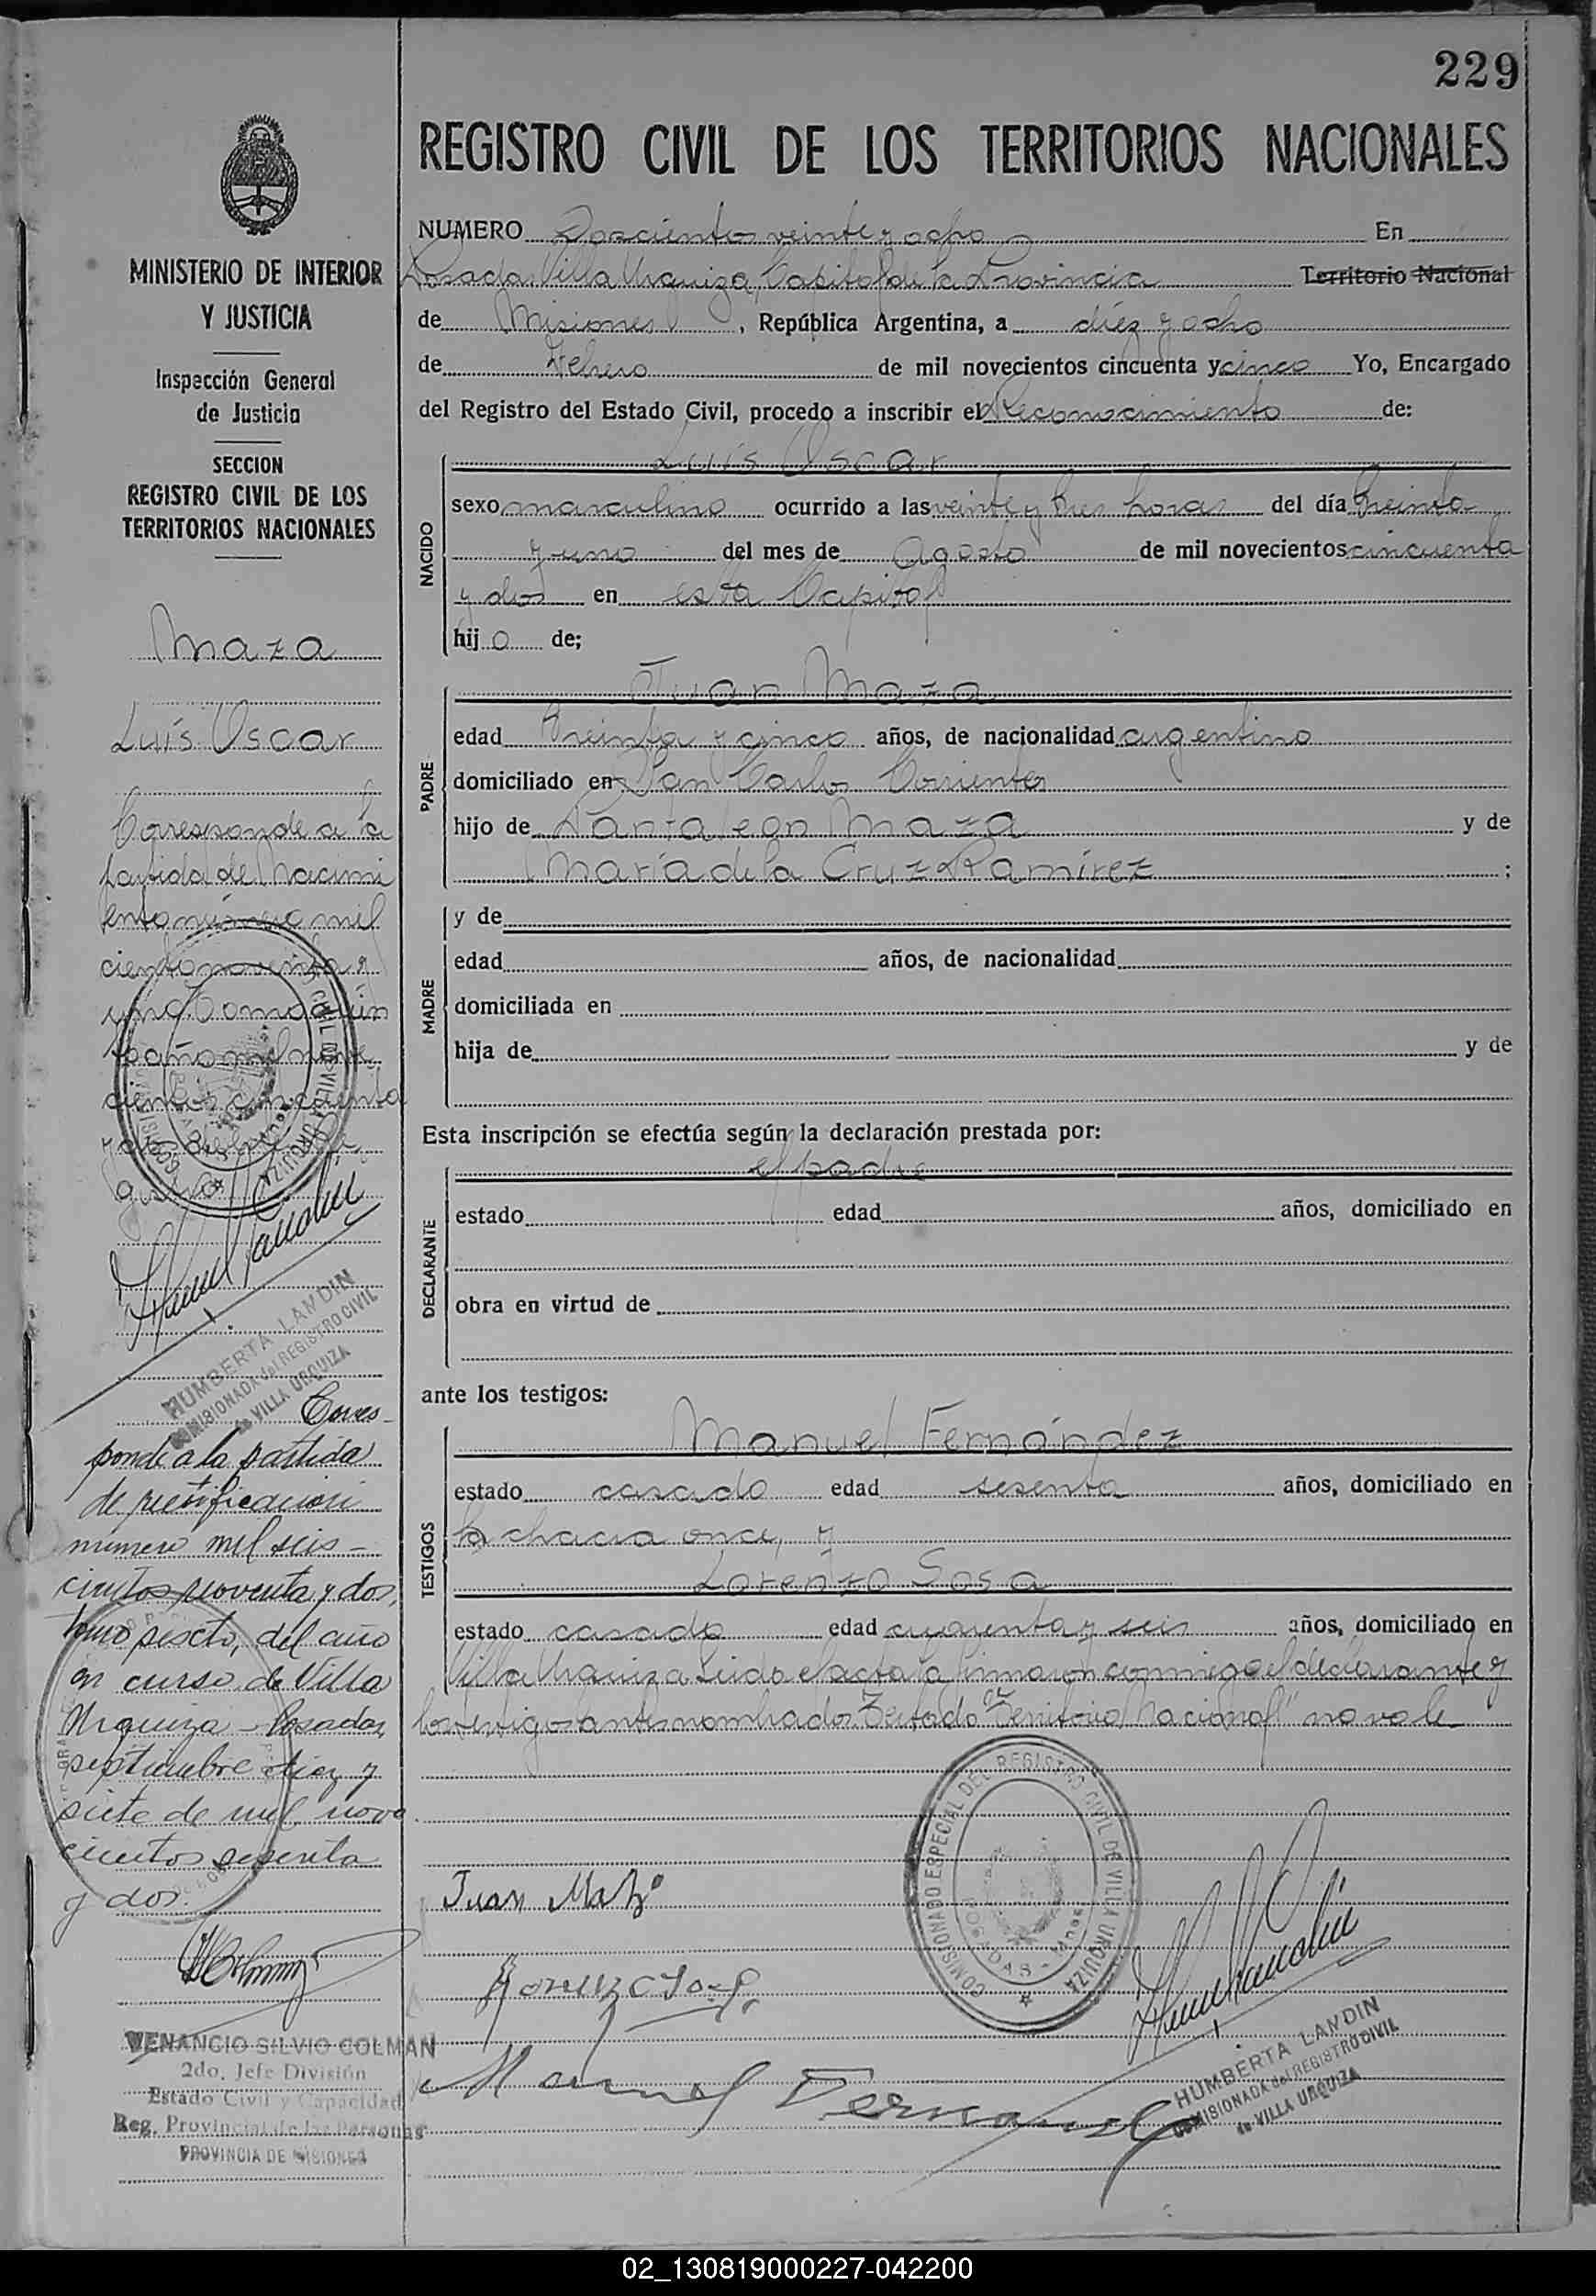 229
MINISTERIO DE INTERIOR
Y JUSTICIA
Inspección General
de Justicia
SECCION
REGISTRO CIVIL DE LOS
TERRITORIOS NACIONALES
Maza
Luís Oscar
Corresponde a la
partida de Nacimi
ento número mil
ciento noventa y
uno Tomo
año mil nove
cientos cincuenta
y dos
HUMBERTA LANDIN
COMISIONADA del REGISTRO CIVIL
de VILLA URQUIZA
Corres-
ponde a la partida
de rectificacion
numero mil seis-
cientos noventa y dos,
tomo sexto, del año
en curso de Villa
Urquiza - Posadas,
septiembre diez y
siete de mil nove
cientos sesenta
y dos.
VENANCIO SILVIO COLMAN
2do. Jefe División
Estado Civil y Capacidad
Reg. Provincial de las Personas
PROVINCIA DE MISIONES
REGISTRO CIVIL DE LOS TERRITORIOS NACIONALES
NUMERO Doscientos veinte y ocho En
Posadas Villa Urquiza, Capital de la Provincia Territorio Nacional
de Misiones, República Argentina, a diez y ocho
de Febrero de mil novecientos cincuenta y cinco Yo, Encargado
del Registro del Estado Civil, procedo a inscribir el Reconocimiento de:
Luís Oscar
NACIDO
sexo masculino ocurrido a las veinte y tres horas del día treinta
y uno del mes de Agosto de mil novecientos cincuenta
y dos en esta Capital
hijo de;
Juan Maza
PADRE
edad treinta y cinco años, de nacionalidad argentino
domiciliado en San Carlos Corrientes
hijo de Pantaleon Maza y de
María de la Cruz Ramírez ;
MADRE
y de
edad años, de nacionalidad
domiciliada en
hija de y de
Esta inscripción se efectúa según la declaración prestada por:
el padre
DECLARANTE
estado edad años, domiciliado en
obra en virtud de
ante los testigos:
Manuel Fernández
TESTIGOS
estado casado edad sesenta años, domiciliado en
la chacra once, y
Lorenzo Sosa
estado casado edad cuarenta y seis años, domiciliado en
Villa Urquiza. Leida el acta la firmaron conmigo el declarante y
los testigos antes nombrados. Testado "Territorio Nacional" no vale
COMISIONADO ESPECIAL DEL REGISTRO CIVIL DE VILLA URQUIZA
POSADAS - Mnes
Juan Maza
Lorenzo Sosa
Manuel Fernandez
HUMBERTA LANDIN
COMISIONADA del REGISTRO CIVIL
de VILLA URQUIZA
02_130819000227-042200